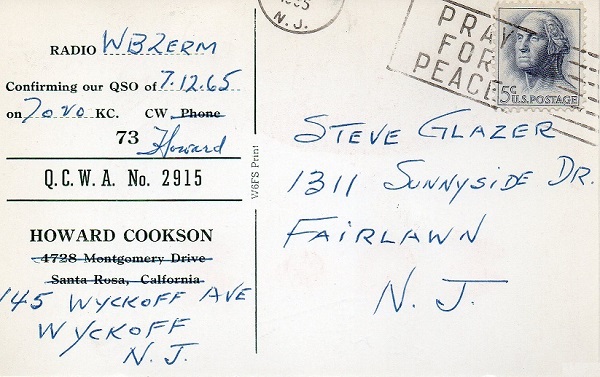 RADIO WB2ERM
Confirming our QSO of 7.12.65
on 7020 KC. CW Phone
73
Howard
Q.C.W.A. No. 2915
HOWARD COOKSON
4728 Montgomery Drive
Santa Rosa, Calfornia
145 WYCKOFF AVE
WYCKOFF
N. J.
W6FS Print
1965
N. J.
PRAY
FOR
PEACE
5¢
U.S. POSTAGE
STEVE GLAZER
1311 SUNNYSIDE DR.
FAIRLAWN
N. J.